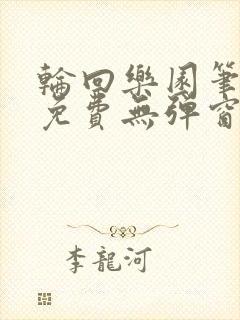 輪回樂園筆
免費無彈窗
李龍河